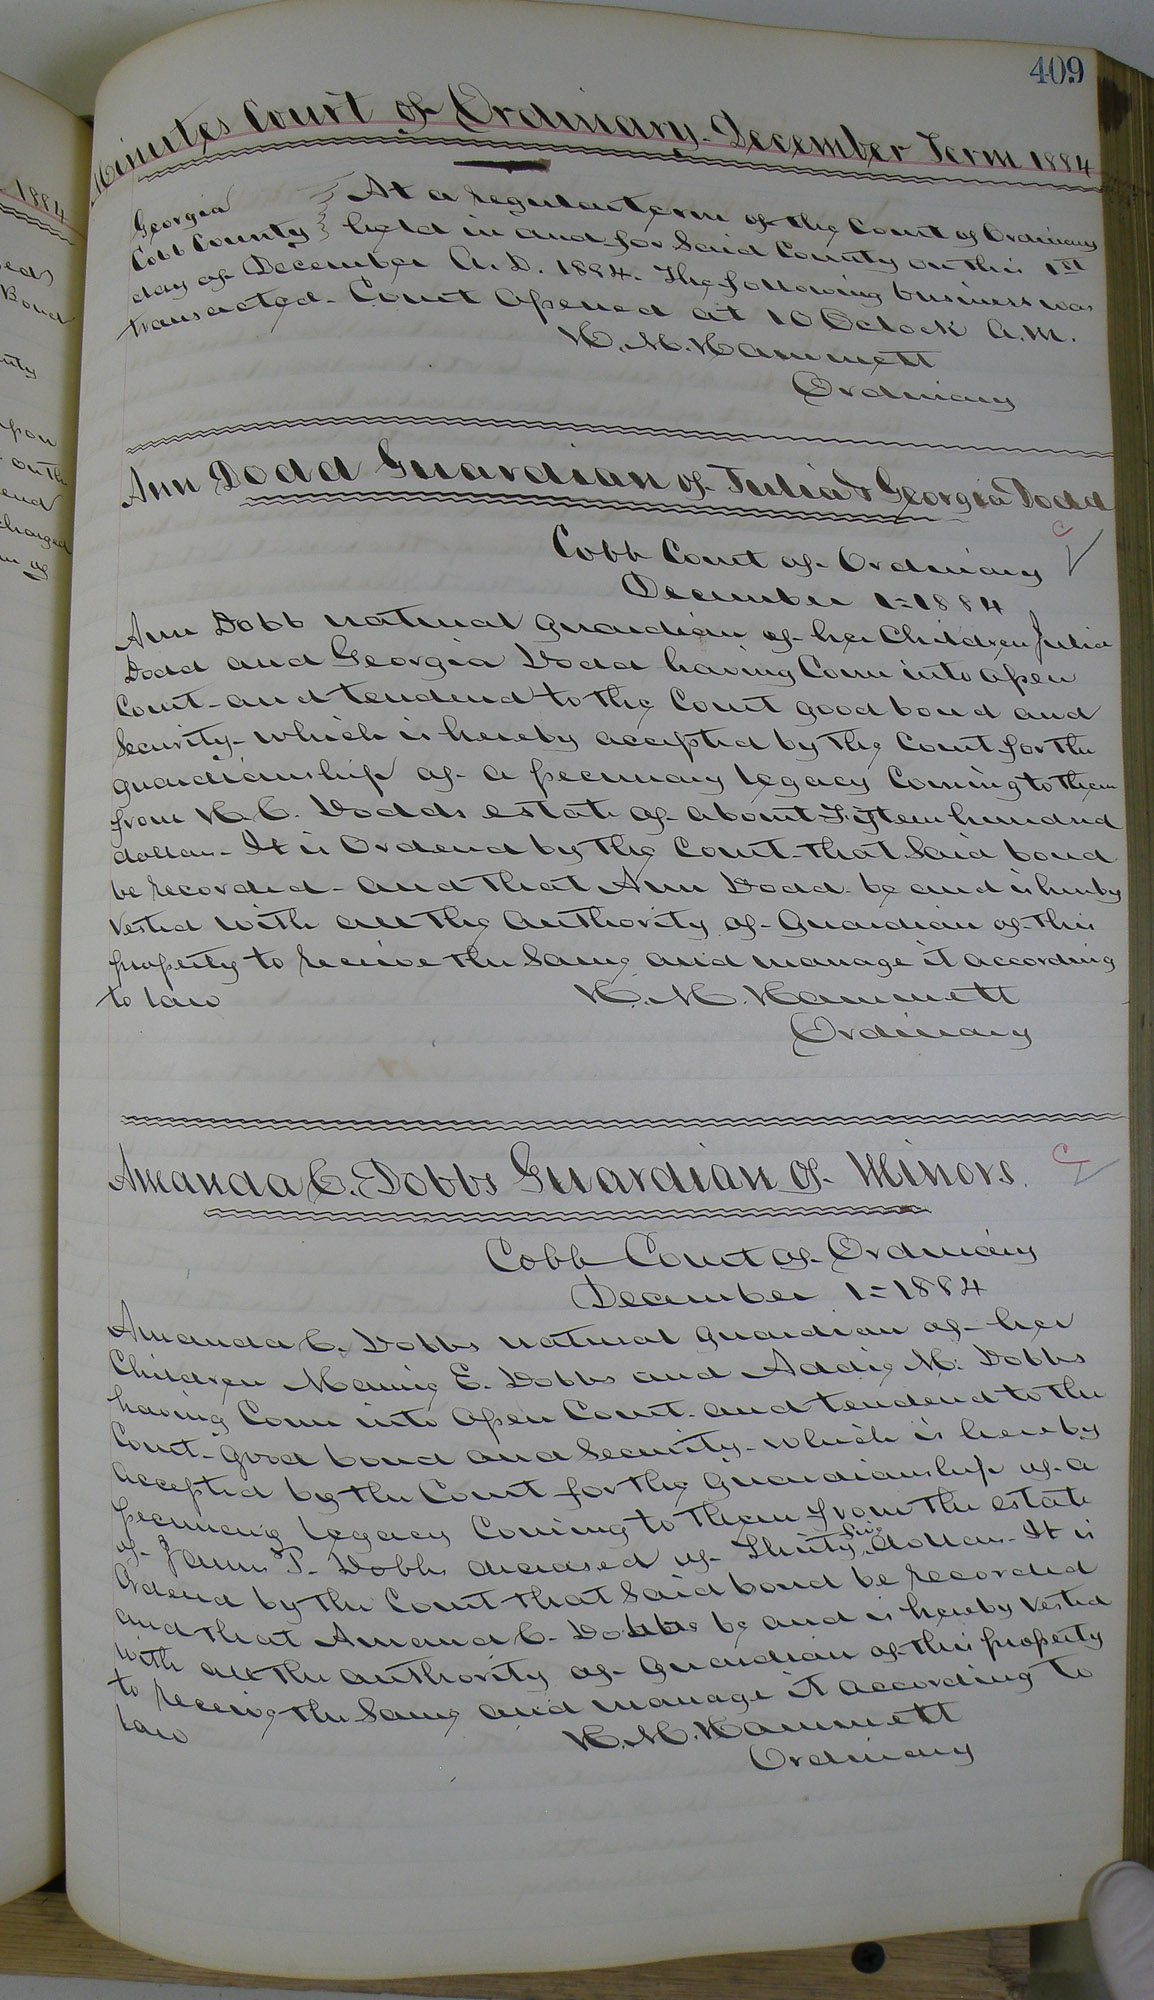 409
Minutes Court of Ordinary December Term 1884
Georgia
Cobb County
At a regular term of the Court of Ordinary
held in and for said County on this 1st
day of December A.D. 1884. The following business was
transacted. Court Opened at 10 Oclock A.M.
H. M. Hammett
Ordinary
Ann Dodd Guardian of Julia & Georgia Dodd
Cobb Court of Ordinary
December 1=1884
Ann Dobb natural guardian of her Children Julia
Dodd and Georgia Dodd having Come into open
Court and tendered to the Court good bond and
Security which is hereby accepted by the Court for the
guardianship of a pecuniary legacy Coming to them
from H. C. Dodds estate of about Fifteen hundred
dollars. It is Ordered by the Court that said bond
be recorded and that Ann Dodd be and is hereby
vested with all the authority of Guardian of this
property to receive the same and manage it according
to law
H. M. Hammett
Ordinary
Amanda C. Dobbs Guardian of Minors.
Cobb Court of Ordinary
December 1=1884
Amanda C. Dobbs natural guardian of her
Children Mamie E. Dobbs and Addie M. Dobbs
having Come into Open Court and tendered to the
Court good bond and Security which is hereby
accepted by the Court for the Guardianship of a
pecuniary legacy Coming to them from the estate
of James P. Dobbs deceased of Thirty Six dollars. It is
Ordered by the Court that said bond be recorded
and that Amanda C. Dobbs be and is hereby vested
with all the authority of Guardian of this property
to receive the same and manage it according to
law
H. M. Hammett
Ordinary